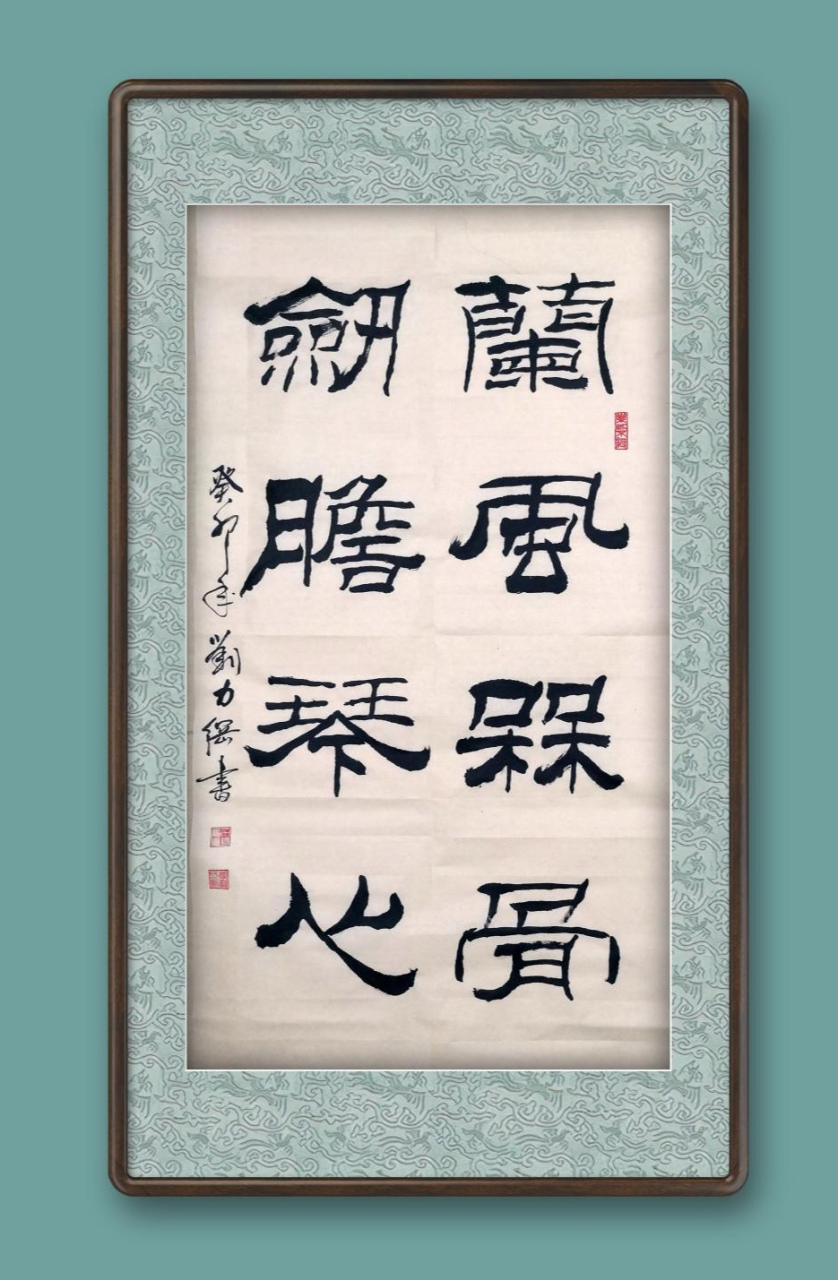 蘭風槑骨
劔膽琴心
癸卯年劉力綱書